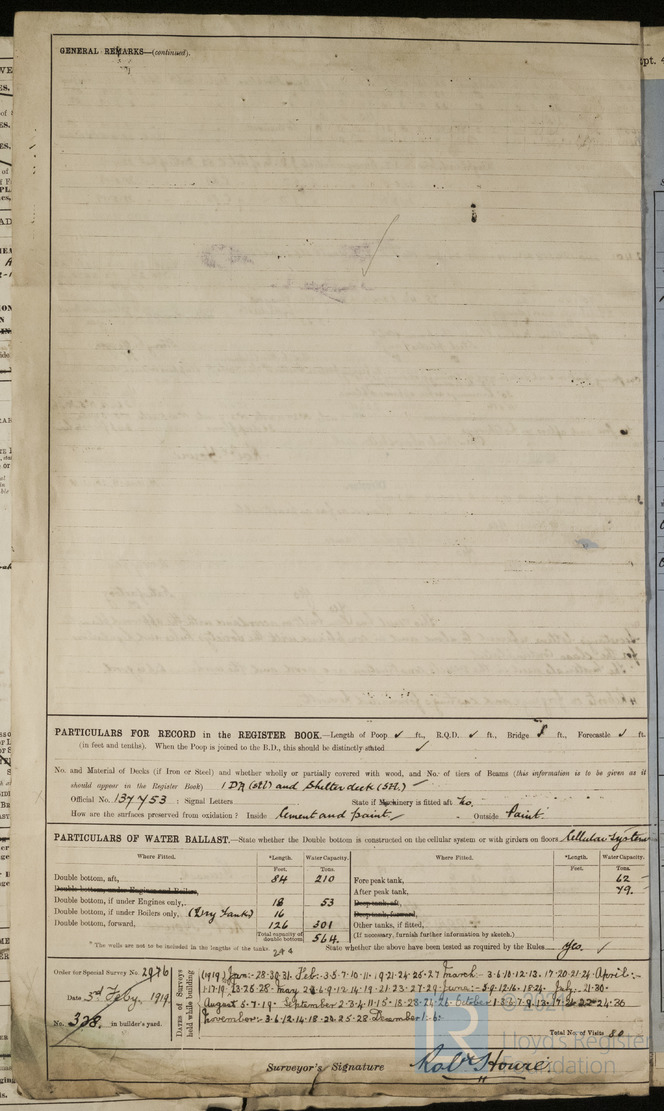 GENERAL REMARKS—(continued).
PARTICULARS FOR RECORD in the REGISTER BOOK.—Length of Poop ✓ ft., R.Q.D. ✓ ft., Bridge ft., Forecastle ✓ ft.
(in feet and tenths). When the Poop is joined to the B.D., this should be distinctly stated ✓
No. and Material of Decks (if Iron or Steel) and whether wholly or partially covered with wood, and No. of tiers of Beams (this information is to be given as it
should appear in the Register Book) 1 Dk (Stl) and Shelter deck (Stl.)
Official No. 137453 : Signal Letters State if Machinery is fitted aft No.
How are the surfaces preserved from oxidation? Inside Cement and paint. Outside Paint.
PARTICULARS OF WATER BALLAST.—State whether the Double bottom is constructed on the cellular system or with girders on floors Cellular System
Where Fitted. *Length. Water Capacity. Where Fitted. *Length. Water Capacity.
Feet. Tons. Feet. Tons.
Double bottom, aft, 84 210 Fore peak tank, 62
Double bottom, under Engines and Boilers, After peak tank, 79.
Double bottom, if under Engines only, 18 53 Deep tank, aft,
Double bottom, if under Boilers only, (Dry Tank) 16 Deep tank, forward,
Double bottom, forward, 126 301 Other tanks, if fitted,
Total capacity of double bottom 564. (If necessary, furnish further information by sketch.)
* The wells are not to be included in the lengths of the tanks 244 State whether the above have been tested as required by the Rules Yes. ✓
Order for Special Survey No. 2976
Date 5th Feby. 1919
No. 338. in builder's yard.
DATES of Surveys held while building
(1919) Jan:- 28.30.31. Feb:- 3.5.7.10.11.19.21.24.25.27 March:- 3.6.10.12.13.17.20.21.24 April:-
August 5.7.19. September 2.3.4.11.15.18.23.24.26 October
November:- 3.6.12.14.18.20.25.28 December 1.6.
Total No. of Visits 80
Surveyor's Signature Robt. Howie.
© 20
Lloyd's Register
Foundation